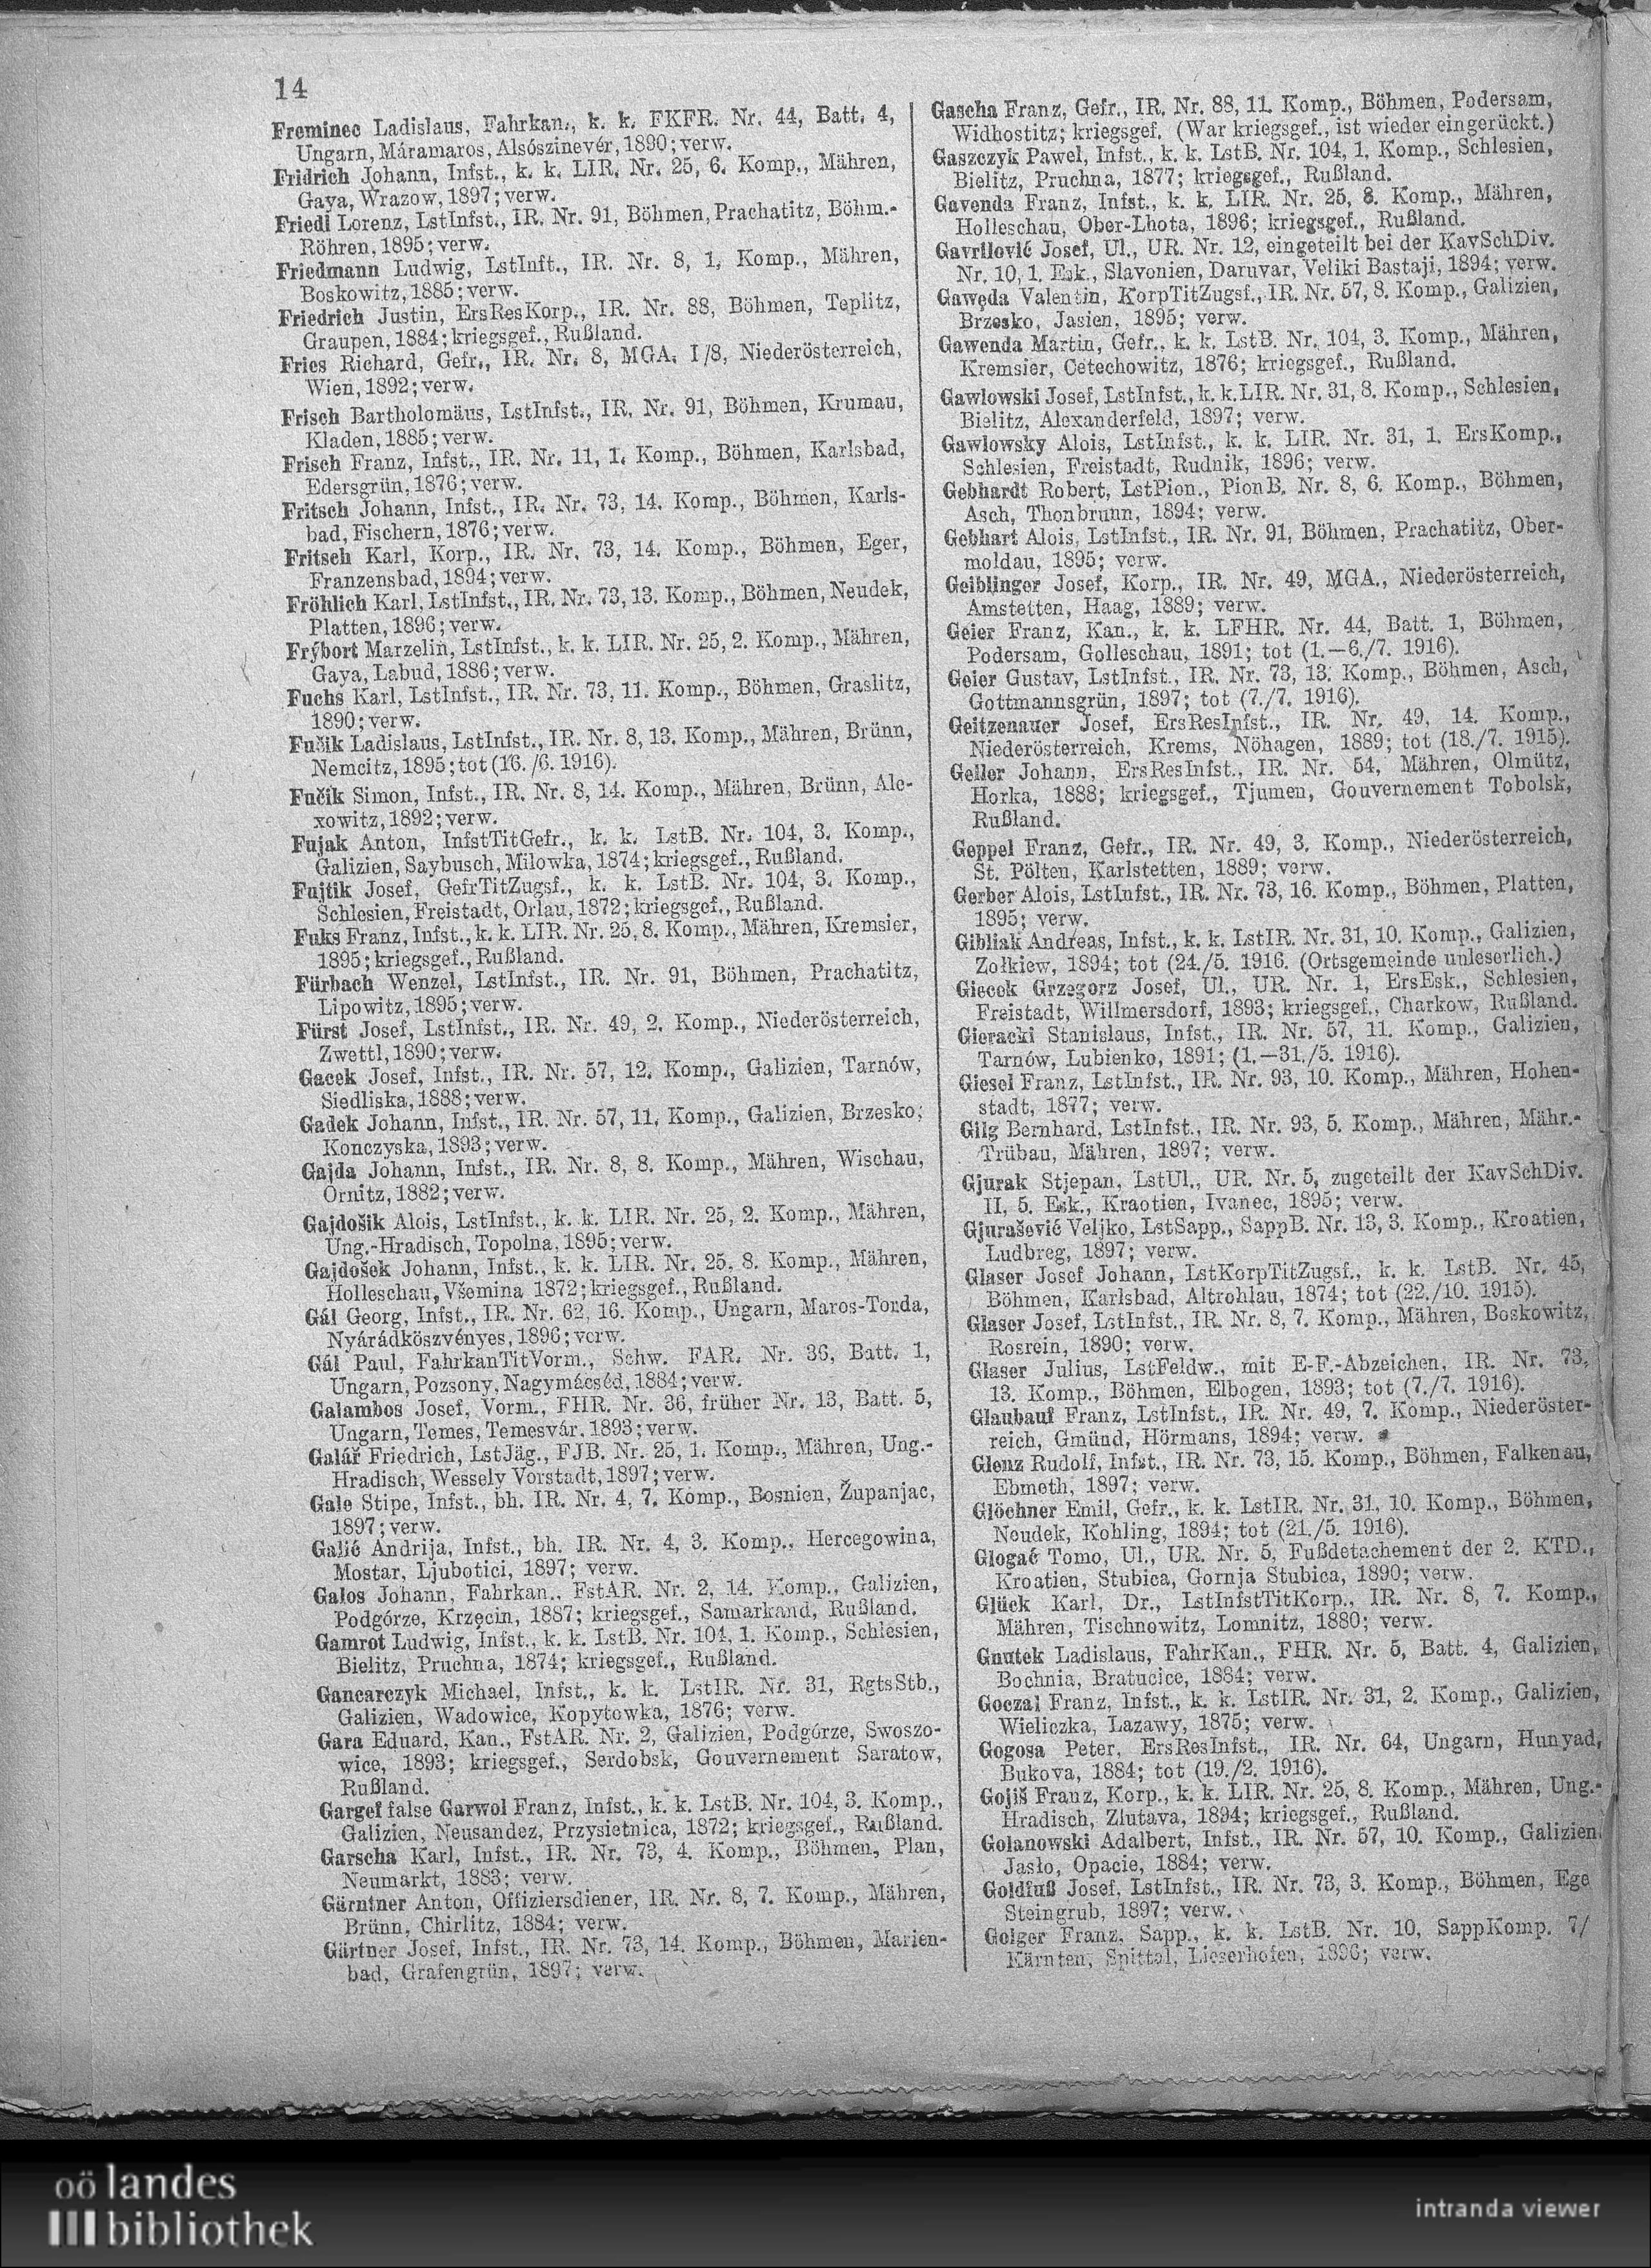 14
Freminec Ladislaus, Fahrkan., k. k. FKFR. Nr. 44, Batt. 4,
Ungarn, Máramaros, Alsószinevér, 1890; verw.
Fridrich Johann, Infst., k. k. LIR. Nr. 25, 6. Komp., Mähren,
Gaya, Wrazow, 1897; verw.
Friedl Lorenz, LstInfst., IR. Nr. 91, Böhmen, Prachatitz, Böhm.-
Röhren, 1895; verw.
Friedmann Ludwig, LstInft., IR. Nr. 8, 1. Komp., Mähren,
Boskowitz, 1885; verw.
Friedrich Justin, ErsResKorp., IR. Nr. 88, Böhmen, Teplitz,
Graupen, 1884; kriegsgef., Rußland.
Fries Richard, Gefr., IR. Nr. 8, MGA. I/8, Niederösterreich,
Wien, 1892; verw.
Frisch Bartholomäus, LstInfst., IR. Nr. 91, Böhmen, Krumau,
Kladen, 1885; verw.
Frisch Franz, Infst., IR. Nr. 11, 1. Komp., Böhmen, Karlsbad,
Edersgrün, 1876; verw.
Fritsch Johann, Infst., IR. Nr. 73, 14. Komp., Böhmen, Karls-
bad, Fischern, 1876; verw.
Fritsch Karl, Korp., IR. Nr. 73, 14. Komp., Böhmen, Eger,
Franzensbad, 1894; verw.
Fröhlich Karl, LstInfst., IR. Nr. 73, 13. Komp., Böhmen, Neudek,
Platten, 1896; verw.
Frýbort Marzelin, LstInfst., k. k. LIR. Nr. 25, 2. Komp., Mähren,
Gaya, Labud, 1886; verw.
Fuchs Karl, LstInfst., IR. Nr. 73, 11. Komp., Böhmen, Graslitz,
1890; verw.
Fučik Ladislaus, LstInfst., IR. Nr. 8, 13. Komp., Mähren, Brünn,
Nemcitz, 1895; tot (16./6. 1916).
Fučik Simon, Infst., IR. Nr. 8, 14. Komp., Mähren, Brünn, Ale-
xowitz, 1892; verw.
Fujak Anton, InfstTitGefr., k. k. LstB. Nr. 104, 3. Komp.,
Galizien, Saybusch, Milowka, 1874; kriegsgef., Rußland.
Fujtik Josef, GefrTitZugsf., k. k. LstB. Nr. 104, 3. Komp.,
Schlesien, Freistadt, Orlau, 1872; kriegsgef., Rußland.
Fuks Franz, Infst., k. k. LIR. Nr. 25, 8. Komp., Mähren, Kremsier,
1895; kriegsgef., Rußland.
Fürbach Wenzel, LstInfst., IR. Nr. 91, Böhmen, Prachatitz,
Lipowitz, 1895; verw.
Fürst Josef, LstInfst., IR. Nr. 49, 2. Komp., Niederösterreich,
Zwettl, 1890; verw.
Gacek Josef, Infst., IR. Nr. 57, 12. Komp., Galizien, Tarnów,
Siedliska, 1888; verw.
Gadek Johann, Infst., IR. Nr. 57, 11. Komp., Galizien, Brzesko,
Konczyska, 1893; verw.
Gajda Johann, Infst., IR. Nr. 8, 8. Komp., Mähren, Wischau,
Ornitz, 1882; verw.
Gajdošik Alois, LstInfst., k. k. LIR. Nr. 25, 2. Komp., Mähren,
Ung.-Hradisch, Topolna, 1895; verw.
Gajdošek Johann, Infst., k. k. LIR. Nr. 25, 8. Komp., Mähren,
Holleschau, Všemina 1872; kriegsgef., Rußland.
Gál Georg, Infst., IR. Nr. 62, 16. Komp., Ungarn, Maros-Torda,
Nyárádköszvényes, 1896; verw.
Gál Paul, FahrkanTitVorm., Schw. FAR. Nr. 36, Batt. 1,
Ungarn, Pozsony, Nagymácséd, 1884; verw.
Galambos Josef, Vorm., FHR. Nr. 36, früher Nr. 13, Batt. 5,
Ungarn, Temes, Temesvár, 1893; verw.
Galář Friedrich, LstJäg., FJB. Nr. 25, 1. Komp., Mähren, Ung.-
Hradisch, Wessely Vorstadt, 1897; verw.
Gale Stipe, Infst., bh. IR. Nr. 4, 7. Komp., Bosnien, Županjac,
1897; verw.
Galić Andrija, Infst., bh. IR. Nr. 4, 3. Komp., Hercegowina,
Mostar, Ljubotici, 1897; verw.
Galos Johann, Fahrkan., FstAR. Nr. 2, 14. Komp., Galizien,
Podgórze, Krzęcin, 1887; kriegsgef., Samarkand, Rußland.
Gamrot Ludwig, Infst., k. k. LstB. Nr. 104, 1. Komp., Schlesien,
Bielitz, Pruchna, 1874; kriegsgef., Rußland.
Gancarczyk Michael, Infst., k. k. LstIR. Nr. 31, RgtsStb.,
Galizien, Wadowice, Kopytowka, 1876; verw.
Gara Eduard, Kan., FstAR. Nr. 2, Galizien, Podgórze, Swoszo-
wice, 1893; kriegsgef., Serdobsk, Gouvernement Saratow,
Rußland.
Gargef false Garwol Franz, Infst., k. k. LstB. Nr. 104, 3. Komp.,
Galizien, Neusandez, Przysietnica, 1872; kriegsgef., Rußland.
Garscha Karl, Infst., IR. Nr. 73, 4. Komp., Böhmen, Plan,
Neumarkt, 1883; verw.
Gärntner Anton, Offiziersdiener, IR. Nr. 8, 7. Komp., Mähren,
Brünn, Chirlitz, 1884; verw.
Gärtner Josef, Infst., IR. Nr. 73, 14. Komp., Böhmen, Marien-
bad, Grafengrün, 1897; verw.
Gascha Franz, Gefr., IR. Nr. 88, 11. Komp., Böhmen, Podersam,
Widhostitz; kriegsgef. (War kriegsgef., ist wieder eingerückt.)
Gaszczyk Pawel, Infst., k. k. LstB. Nr. 104, 1. Komp., Schlesien,
Bielitz, Pruchna, 1877; kriegsgef., Rußland.
Gavenda Franz, Infst., k. k. LIR. Nr. 25, 8. Komp., Mähren,
Holleschau, Ober-Lhota, 1896; kriegsgef., Rußland.
Gavrilović Josef, Ul., UR. Nr. 12, eingeteilt bei der KavSchDiv.
Nr. 10, 1. Esk., Slavonien, Daruvar, Veliki Bastaji, 1894; verw.
Gawęda Valentin, KorpTitZugsf., IR. Nr. 57, 8. Komp., Galizien,
Brzesko, Jasien, 1895; verw.
Gawenda Martin, Gefr., k. k. LstB. Nr. 104, 3. Komp., Mähren,
Kremsier, Cetechowitz, 1876; kriegsgef., Rußland.
Gawlowski Josef, LstInfst., k. k. LIR. Nr. 31, 8. Komp., Schlesien,
Bielitz, Alexanderfeld, 1897; verw.
Gawlowsky Alois, LstInfst., k. k. LIR. Nr. 31, 1. ErsKomp.,
Schlesien, Freistadt, Rudnik, 1896; verw.
Gebhardt Robert, LstPion., PionB. Nr. 8, 6. Komp., Böhmen,
Asch, Thonbrunn, 1894; verw.
Gebhart Alois, LstInfst., IR. Nr. 91, Böhmen, Prachatitz, Ober-
moldau, 1895; verw.
Geiblinger Josef, Korp., IR. Nr. 49, MGA., Niederösterreich,
Amstetten, Haag, 1889; verw.
Geier Franz, Kan., k. k. LFHR. Nr. 44, Batt. 1, Böhmen,
Podersam, Golleschau, 1891; tot (1.—6./7. 1916).
Geier Gustav, LstInfst., IR. Nr. 73, 13. Komp., Böhmen, Asch,
Gottmannsgrün, 1897; tot (7./7. 1916).
Geitzenauer Josef, ErsResInfst., IR. Nr. 49, 14. Komp.,
Niederösterreich, Krems, Nöhagen, 1889; tot (18./7. 1915).
Geller Johann, ErsResInfst., IR. Nr. 54, Mähren, Olmütz,
Horka, 1888; kriegsgef., Tjumen, Gouvernement Tobolsk,
Rußland.
Geppel Franz, Gefr., IR. Nr. 49, 3. Komp., Niederösterreich,
St. Pölten, Karlstetten, 1889; verw.
Gerber Alois, LstInfst., IR. Nr. 73, 16. Komp., Böhmen, Platten,
1895; verw.
Gibliak Andreas, Infst., k. k. LstIR. Nr. 31, 10. Komp., Galizien,
Zołkiew, 1894; tot (24./5. 1916. (Ortsgemeinde unleserlich.)
Giecek Grzegorz Josef, Ul., UR. Nr. 1, ErsEsk., Schlesien,
Freistadt, Willmersdorf, 1893; kriegsgef., Charkow, Rußland.
Gieracki Stanislaus, Infst., IR. Nr. 57, 11. Komp., Galizien,
Tarnów, Lubienko, 1891; (1.—31./5. 1916).
Giesel Franz, LstInfst., IR. Nr. 93, 10. Komp., Mähren, Hohen-
stadt, 1877; verw.
Gilg Bernhard, LstInfst., IR. Nr. 93, 5. Komp., Mähren, Mähr.-
Trübau, Mähren, 1897; verw.
Gjurak Stjepan, LstUl., UR. Nr. 5, zugeteilt der KavSchDiv.
II, 5. Esk., Kraotien, Ivanec, 1895; verw.
Gjurašević Veljko, LstSapp., SappB. Nr. 13, 3. Komp., Kroatien,
Ludbreg, 1897; verw.
Glaser Josef Johann, LstKorpTitZugsf., k. k. LstB. Nr. 45,
Böhmen, Karlsbad, Altrohlau, 1874; tot (22./10. 1915).
Glaser Josef, LstInfst., IR. Nr. 8, 7. Komp., Mähren, Boskowitz,
Rosrein, 1890; verw.
Glaser Julius, LstFeldw., mit E-F.-Abzeichen, IR. Nr. 73,
13. Komp., Böhmen, Elbogen, 1893; tot (7./7. 1916).
Glaubauf Franz, LstInfst., IR. Nr. 49, 7. Komp., Niederöster-
reich, Gmünd, Hörmans, 1894; verw.
Glenz Rudolf, Infst., IR. Nr. 73, 15. Komp., Böhmen, Falkenau,
Ebmeth, 1897; verw.
Glöchner Emil, Gefr., k. k. LstIR. Nr. 31, 10. Komp., Böhmen,
Neudek, Kohling, 1894; tot (21./5. 1916).
Glogać Tomo, Ul., UR. Nr. 5, Fußdetachement der 2. KTD.,
Kroatien, Stubica, Gornja Stubica, 1890; verw.
Glück Karl, Dr., LstInfstTitKorp., IR. Nr. 8, 7. Komp.,
Mähren, Tischnowitz, Lomnitz, 1880; verw.
Gnutek Ladislaus, FahrKan., FHR. Nr. 5, Batt. 4, Galizien,
Bochnia, Bratucice, 1884; verw.
Goczal Franz, Infst., k. k. LstIR. Nr. 31, 2. Komp., Galizien,
Wieliczka, Lazawy, 1875; verw.
Gogosa Peter, ErsResInfst., IR. Nr. 64, Ungarn, Hunyad,
Bukova, 1884; tot (19./2. 1916).
Gojiš Franz, Korp., k. k. LIR. Nr. 25, 8. Komp., Mähren, Ung.-
Hradisch, Zlutava, 1894; kriegsgef., Rußland.
Golanowski Adalbert, Infst., IR. Nr. 57, 10. Komp., Galizien,
Jasło, Opacie, 1884; verw.
Goldfuß Josef, LstInfst., IR. Nr. 73, 3. Komp., Böhmen, Ege
Steingrub, 1897; verw.
Golger Franz, Sapp., k. k. LstB. Nr. 10, SappKomp. 7/
Kärnten, Spittal, Lieserhofen, 1896; verw.
oö landes
bibliothek
intranda viewer